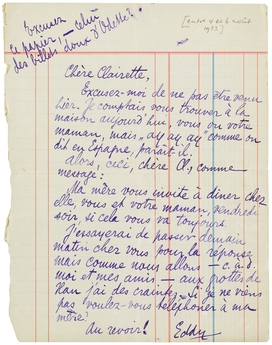 Excusez
le papier — celui
des billets doux d'Odette!
[entre 4 et 6 août
1932]
Chère Clairette,
Excusez-moi de ne pas être venu
hier. Je comptais vous trouver à la
maison aujourd'hui, vous ou votre
maman, mais, "ay ay ay" comme on
dit en Espagne, paraît-il.
Alors, ceci, chère Cl, comme
message:
Ma mère vous invite à dîner chez
elle, vous et votre maman, vendredi
soir, si cela vous va toujours.
J'essayerai de passer demain
matin chez vous pour la réponse
mais comme nous allons — c.à.d.
moi et mes amis — aux grottes de
Han j'ai des craintes. Si je ne viens
pas voulez-vous téléphoner à ma
mère?
Au revoir!
Eddy